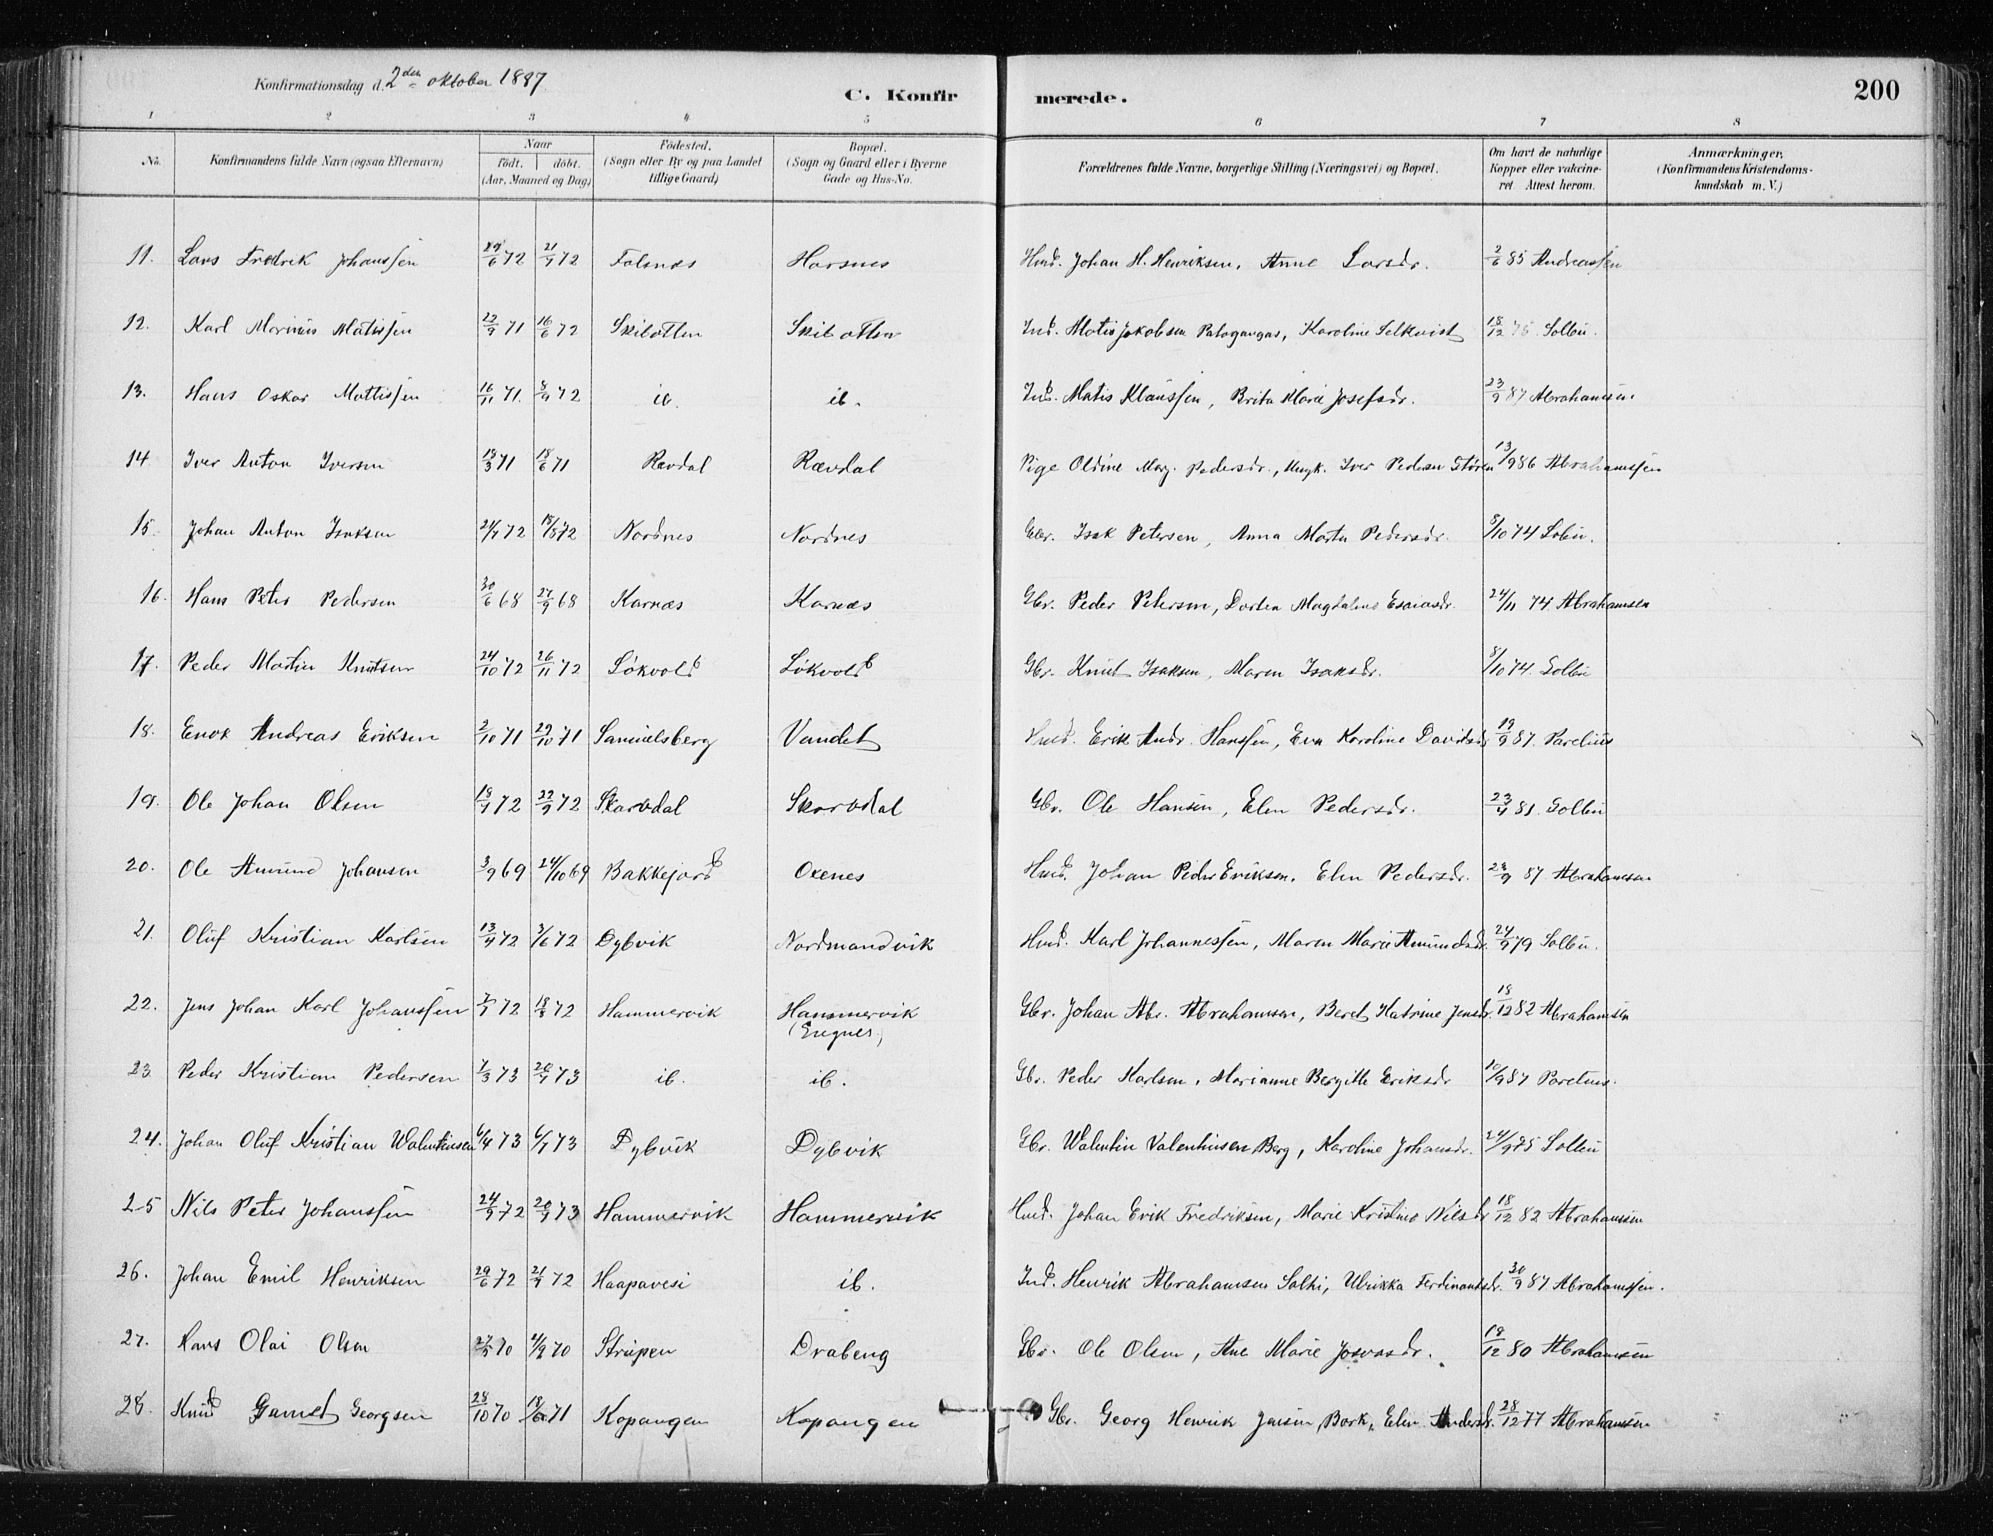 Konfirmationsdag d. 2den oktober 1887.
C. Konfirmerede.
200
1 2 3 4 5 6 7 8
No. Konfirmandens fulde Navn (ogsaa Efternavn) Naar født. døbt. (Aar, Maaned og Dag) Fødested. (Sogn eller By og paa Landet tillige Gaard) Bopæl. (Sogn og Gaard eller i Byerne Gade og Hus-No. Forældrenes fulde Navne, borgerlige Stilling (Næringsvei) og Bopæl. Om havt de naturlige Kopper eller vakcineret. Attest herom. Anmærkninger, (Konfirmandens Kristendomskundskab m. V.)
11. Lars Fredrik Johanssen 29/6 72 21/7 72 Falsnæs Horsnes Hmd. Johan H. Henriksen, Anne Larsdr. 2/6 85 Andreassen
12. Karl Marinus Matissen 22/9 71 16/6 72 Skibotten Skibotten Ind. Matis Jakobsen Palogangas, Karoline Selkvist 18/12 75 Solbu.
13. Hans Oskar Mattissen 16/11 71. 3/9 72 ib. ib. Ind. Matis Klaussen, Brita Marie Josefsdr. 23/9 87 Abrahamsen
14 Iver Anton Iversen 13/3 71 18/6 71 Rævdal Rævdal Pige Oldine Marg. Pedersdr., Ungk. Iver Pedersen Støren 13/9 86 Abrahamssen
15 Johan Anton Isaksen 21/7 72 18/8 72 Nordnes Nordnes Gbr. Isak Petersen, Anna Marta Pedersdr. 8/10 74 Solbu.
16. Hans Peter Pedersen 30/6 68 27/9 68 Karnæs Karnæs Gbr. Peder Petersen, Dortea Magdalene Esaiasdr. 24/11 74 Abrahamsen
17. Peder Martin Knutsen 24/10 72 26/11 72 Løkvold Løkvold Gbr. Knut Isaksen, Maren Isaksdr. 8/10 74. Solbu
18. Enok Andreas Eriksen 2/10 71 29/10 71 Samuelsberg Vandet Hmd. Erik Andr. Hanssen, Eva Karoline Davidsdr. 19/9 87. Parelius
19. Ole Johan Olsen 18/7 72 22/9 72 Skarvdal Skarvdal Gbr. Ole Hansen, Elen Pedersdr. 23/4 81. Solbu
20. Ole Amund Johansen 3/9 69 24/10 69 Bakkejord Oxenes Hmd. Johan Peder Eriksen, Elen Pedersdr. 23/9 87 Abrahamsen
21. Oluf Kristian Karlsen 13/4 72 3/6 72 Dybvik Nordmandvik Hmd. Karl Johannessen, Maren Marie Amundsdr. 24/9 79 Solbu.
22. Jens Johan Karl Johanssen 7/7 72 18/8 72 Hammervik Hammervik Gbr. Johan Abr. Abrahamsen, Beret Katrine Jensdr. 18/12 82 Abrahamsen
(Engnes)
23 Peder Kristian Pedersen 7/3 73 20/7 73 ib. ib. Gbr. Peder Karlsen, Marianne Bergitte Eriksdr 10/9 87 Parelius.
24. Johan Oluf Kristian Walentinsen 6/4 73 6/7 73 Dybvik Dybvik Gbr. Walentin Valentinsen Berg, Karoline Johansdr. 24/9 75 Solbu
25 Nils Peter Johanssen 24/9 72 20/7 73 Hammervik Hammervik Hmd. Johan Erik Fredriksen, Marie Kristine Nilsdr 18/12 82 Abrahamsen
26. Johan Emil Henriksen 29/6 72 21/7 72 Haapavesi ib. Ind. Henrik Abrahamsen Salki, Ulrikka Ferdinandsdr. 30/9 87 Abrahamssen.
27. Hans Olai Olsen 27/5 70 4/9 70 Strupen Drabeng Gbr. Ole Olsen, Ane Marie Josvasdr. 18/12 80 Abrahamsen
28. Knud Gamst Georgsen 28/10 70 18/6 71 Kopangen Kopangen Gbr. Georg Henrik Jensen Bork, Elen Andersdr. 28/12 77 Abrahamsen